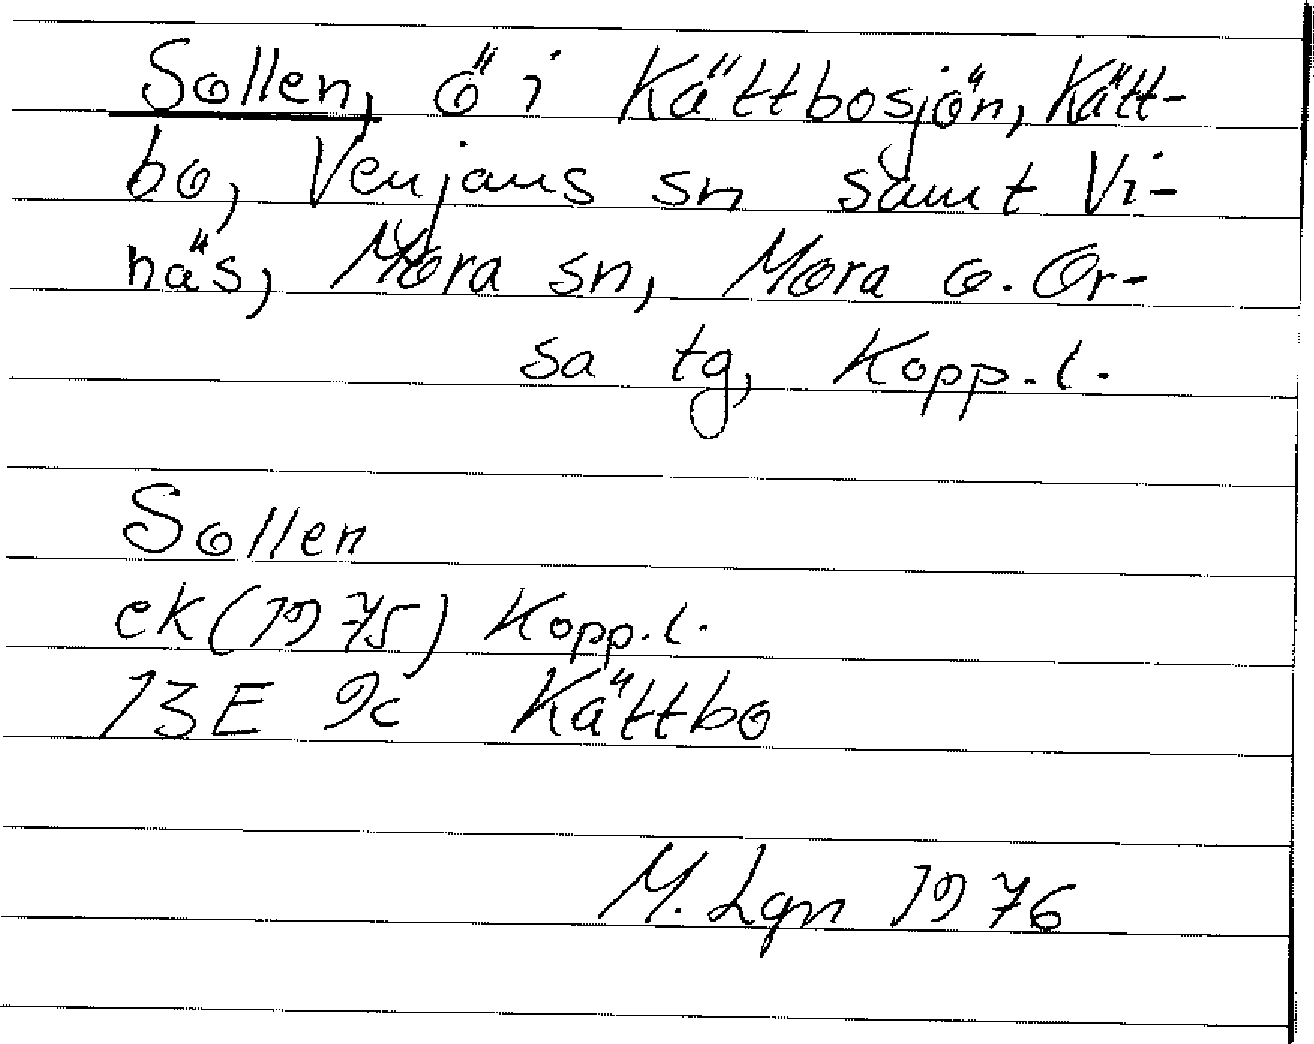 Sollen, ö i Kättbosjön, Kätt-
bo, Venjans sn samt Vi-
näs, Mora sn, Mora o. Or-
sa tg, Kopp. l.
Sollen
ek (1975) Kopp. l.
13E 9c Kättbo
M. Lgn 1976